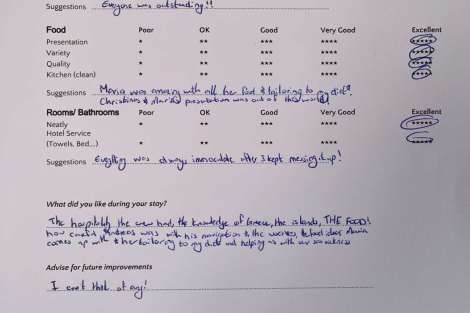 Suggestions Everyone was outstanding!!
Food Poor OK Good Very Good Excellent
Presentation * ** *** **** *****
Variety * ** *** **** *****
Quality * ** *** **** *****
Kitchen (clean) * ** *** **** *****
Suggestions Maria was amazing with all her food & tailoring to my diet!
Christinas & Maria's presentation was out of this world!
Rooms/ Bathrooms Poor OK Good Very Good Excellent
Neatly * ** *** **** *****
Hotel Service
(Towels, Bed...) * ** *** **** *****
Suggestions Everything was always immaculate after I kept messing it up!
What did you like during your stay?
The hospitality the crew had, the knowledge of Greece, the islands, THE FOOD!
how careful Andreas was with his navigation & the waves, the food ideas Maria
comes up with & her tailoring to my diet and helping us with our seasickness
Advise for future improvements
I can't think of any!